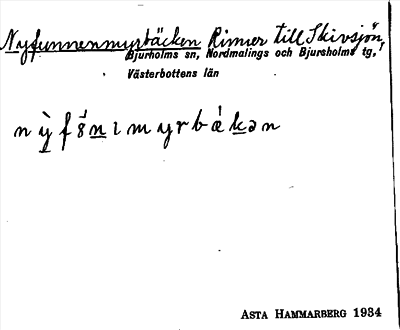 Nyfunnenmyrbäcken Rinner till Skivsjön,
Bjurholms sn, Nordmalings och Bjurholms tg,
Västerbottens län
ASTA HAMMARBERG 1934